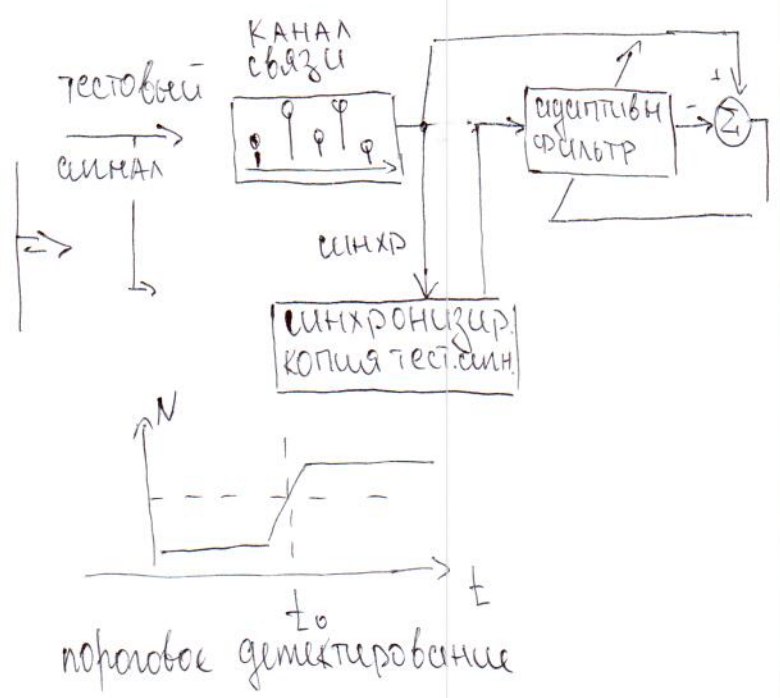 канал
связи
тестовый
сигнал
адаптивн
фильтр
+
-
Σ
синхр
синхронизир.
копия тест.сигн.
N
t
t₀
пороговое детектирование